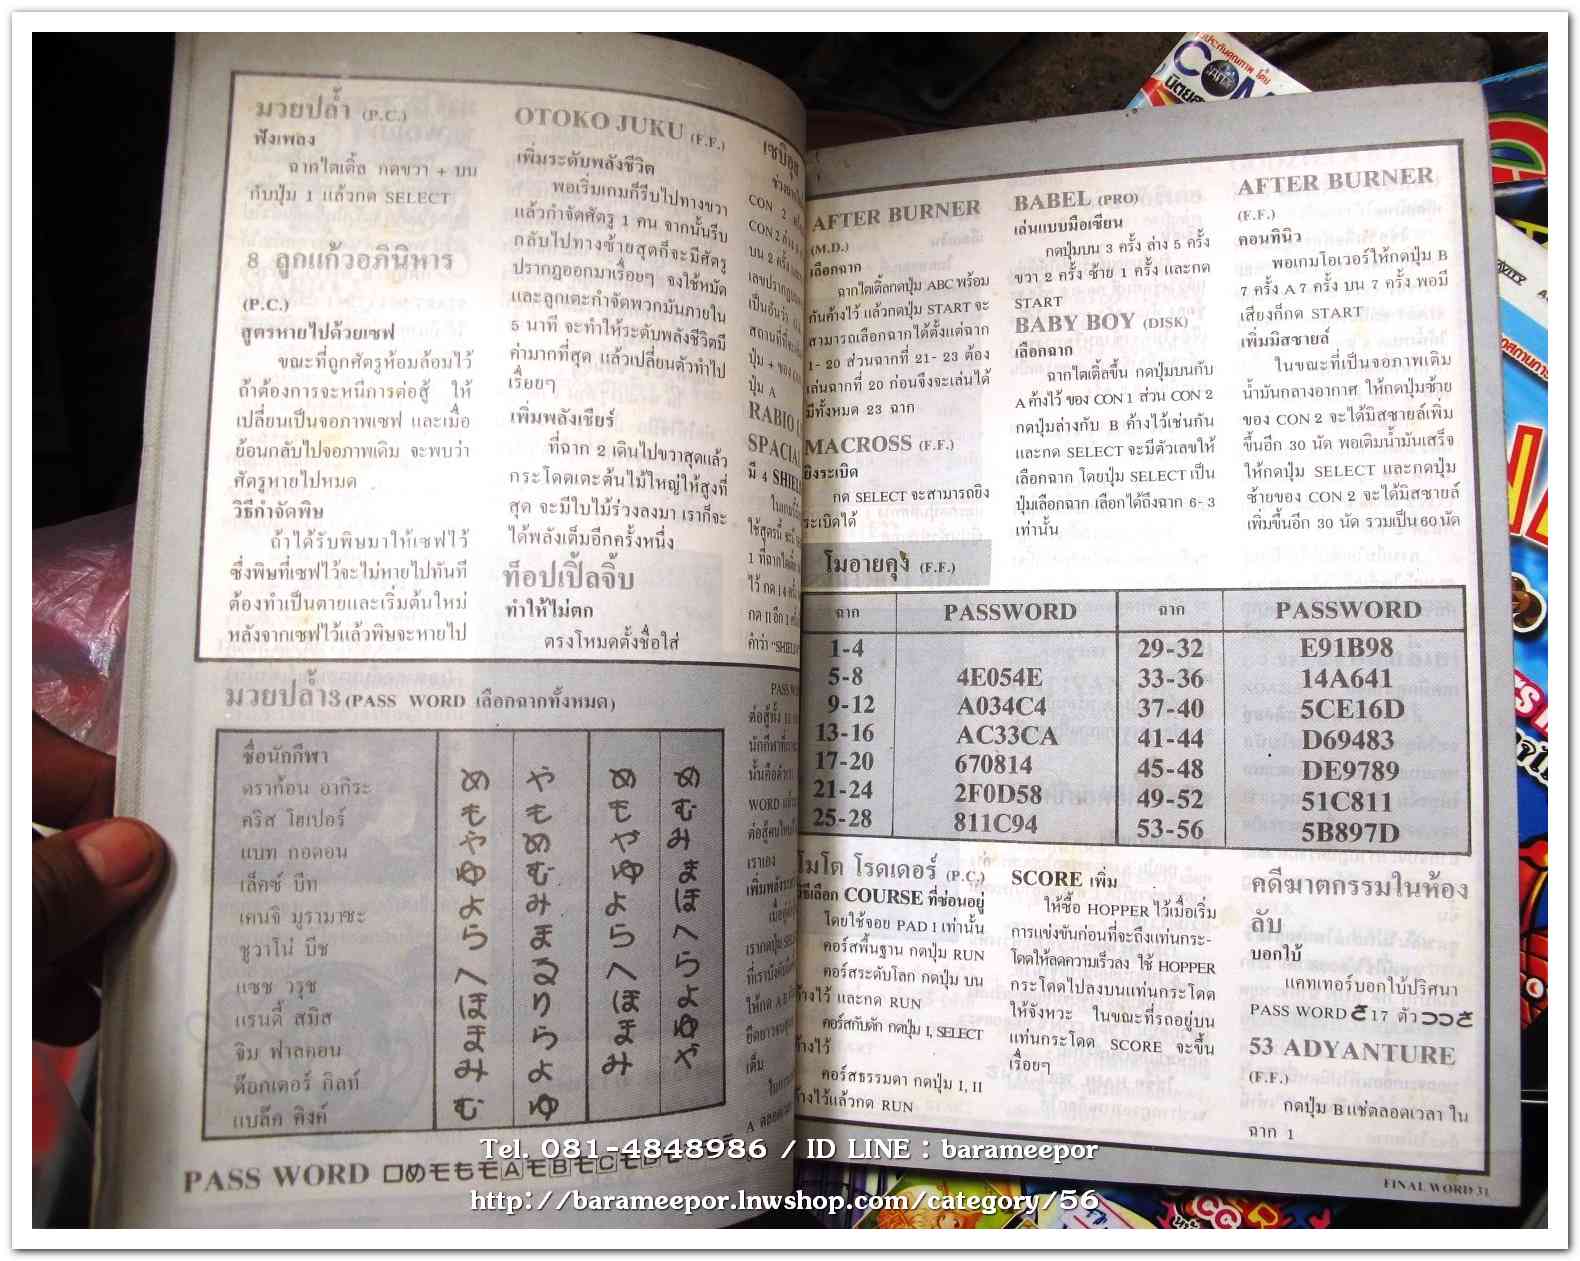 มวยปล้ำ (P.C.)
ฟังเพลง
ฉากไตเติ้ล กดขวา + บน
กับปุ่ม 1 แล้วกด SELECT
8 ลูกแก้วอภินิหาร
(P.C.)
สูตรหายไปด้วยเซฟ
ขณะที่ถูกศัตรูห้อมล้อมไว้
ถ้าต้องการจะหนีการต่อสู้ ให้
เปลี่ยนเป็นจอภาพเซฟ และเมื่อ
ย้อนกลับไปจอภาพเดิม จะพบว่า
ศัตรูหายไปหมด
วิธีกำจัดพิษ
ถ้าได้รับพิษมาให้เซฟไว้
ซึ่งพิษที่เซฟไว้จะไม่หายไปทันที
ต้องทำเป็นตายและเริ่มต้นใหม่
หลังจากเซฟไว้แล้วพิษจะหายไป
OTOKO JUKU (F.F.)
เพิ่มระดับพลังชีวิต
พอเริ่มเกมก็รีบไปทางขวา
แล้วกำจัดศัตรู 1 คน จากนั้นรีบ
กลับไปทางซ้ายสุดก็จะมีศัตรู
ปรากฏออกมาเรื่อยๆ จงใช้หมัด
และลูกเตะกำจัดพวกมันภายใน
5 นาที จะทำให้ระดับพลังชีวิตมี
ค่ามากที่สุด แล้วเปลี่ยนตัวทำไป
เรื่อยๆ
เพิ่มพลังเชียร์
ที่ฉาก 2 เดินไปขวาสุดแล้ว
กระโดดเตะต้นไม้ใหญ่ให้สูงที่
สุด จะมีใบไม้ร่วงลงมา เราก็จะ
ได้พลังเต็มอีกครั้งหนึ่ง
ท็อปเปิ้ลจิ้บ
ทำให้ไม่ตก
ตรงโหมดตั้งชื่อใส่
CON 2
CON 2
บน 2 ครั้ง
ปุ่ม A
RABIO
SPACIAL
มี 4 SHIEL
มวยปล้ำ3 (PASS WORD เลือกฉากทั้งหมด)
ชื่อนักกีฬา
ดราก้อน อากิระ め や め め
คริส ไฮเปอร์ も も も む
แบท กอดอน や め や み
เล็คซ์ บีท ゆ む ゆ ま
เคนจิ มูรามาซะ よ み よ ほ
ซูวาโน่ บีช ら ま ら へ
แซช วรุช へ る へ ら
แรนดี้ สมิส ほ り ほ よ
จิม ฟาลคอน ま ら ま ゆ
ด๊อกเตอร์ กิลท์ み よ み や
แบล็ค คิงค์ む ゆ
PASS WORD ロめモもモAモBモCモD
AFTER BURNER
(M.D.)
เลือกฉาก
ฉากไตเติ้ลกดปุ่ม ABC พร้อม
กันค้างไว้ แล้วกดปุ่ม START จะ
สามารถเลือกฉากได้ตั้งแต่ฉาก
1- 20 ส่วนฉากที่ 21- 23 ต้อง
เล่นฉากที่ 20 ก่อนจึงจะเล่นได้
มีทั้งหมด 23 ฉาก
MACROSS (F.F.)
ยิงระเบิด
กด SELECT จะสามารถยิง
ระเบิดได้
BABEL (PRO)
เล่นแบบมือเซียน
กดปุ่มบน 3 ครั้ง ล่าง 5 ครั้ง
ขวา 2 ครั้ง ซ้าย 1 ครั้ง และกด
START
BABY BOY (DISK)
เลือกฉาก
ฉากไตเติ้ลขึ้น กดปุ่มบนกับ
A ค้างไว้ ของ CON 1 ส่วน CON 2
กดปุ่มล่างกับ B ค้างไว้เช่นกัน
และกด SELECT จะมีตัวเลขให้
เลือกฉาก โดยปุ่ม SELECT เป็น
ปุ่มเลือกฉาก เลือกได้ถึงฉาก 6- 3
เท่านั้น
AFTER BURNER
(F.F.)
คอนทินิว
พอเกมโอเวอร์ให้กดปุ่ม B
7 ครั้ง A 7 ครั้ง บน 7 ครั้ง พอมี
เสียงก็กด START
เพิ่มมิสซายล์
ในขณะที่เป็นจอภาพเติม
น้ำมันกลางอากาศ ให้กดปุ่มซ้าย
ของ CON 2 จะได้มิสซายล์เพิ่ม
ขึ้นอีก 30 นัด พอเติมน้ำมันเสร็จ
ให้กดปุ่ม SELECT และกดปุ่ม
ซ้ายของ CON 2 จะได้มิสซายล์
เพิ่มขึ้นอีก 30 นัด รวมเป็น 60 นัด
โมอายคุง (F.F.)
ฉาก PASSWORD ฉาก PASSWORD
1-4 29-32 E91B98
5-8 4E054E 33-36 14A641
9-12 A034C4 37-40 5CE16D
13-16 AC33CA 41-44 D69483
17-20 670814 45-48 DE9789
21-24 2F0D58 49-52 51C811
25-28 811C94 53-56 5B897D
โมโต โรดเดอร์ (P.C.)
วิธีเลือก COURSE ที่ซ่อนอยู่
โดยใช้จอย PAD I เท่านั้น
คอร์สพื้นฐาน กดปุ่ม RUN
คอร์สระดับโลก กดปุ่ม บน
ค้างไว้ และกด RUN
คอร์สกับดัก กดปุ่ม I, SELECT
ค้างไว้
คอร์สธรรมดา กดปุ่ม I, II
ค้างไว้แล้วกด RUN
SCORE เพิ่ม
ให้ซื้อ HOPPER ไว้เมื่อเริ่ม
การแข่งขันก่อนที่จะถึงแท่นกระ-
โดดให้ลดความเร็วลง ใช้ HOPPER
กระโดดไปลงบนแท่นกระโดด
ให้จังหวะ ในขณะที่รถอยู่บน
แท่นกระโดด SCORE จะขึ้น
เรื่อยๆ
คดีฆาตกรรมในห้อง
ลับ
บอกใบ้
แคทเทอร์บอกใบ้ปริศนา
PASS WORD さ 17 ตัว つつさ
53 ADYANTURE
(F.F.)
กดปุ่ม B แช่ตลอดเวลา ใน
ฉาก 1
FINAL WORD 31
Tel. 081-4848986 / ID LINE : barameepor
http://barameepor.lnwshop.com/category/56